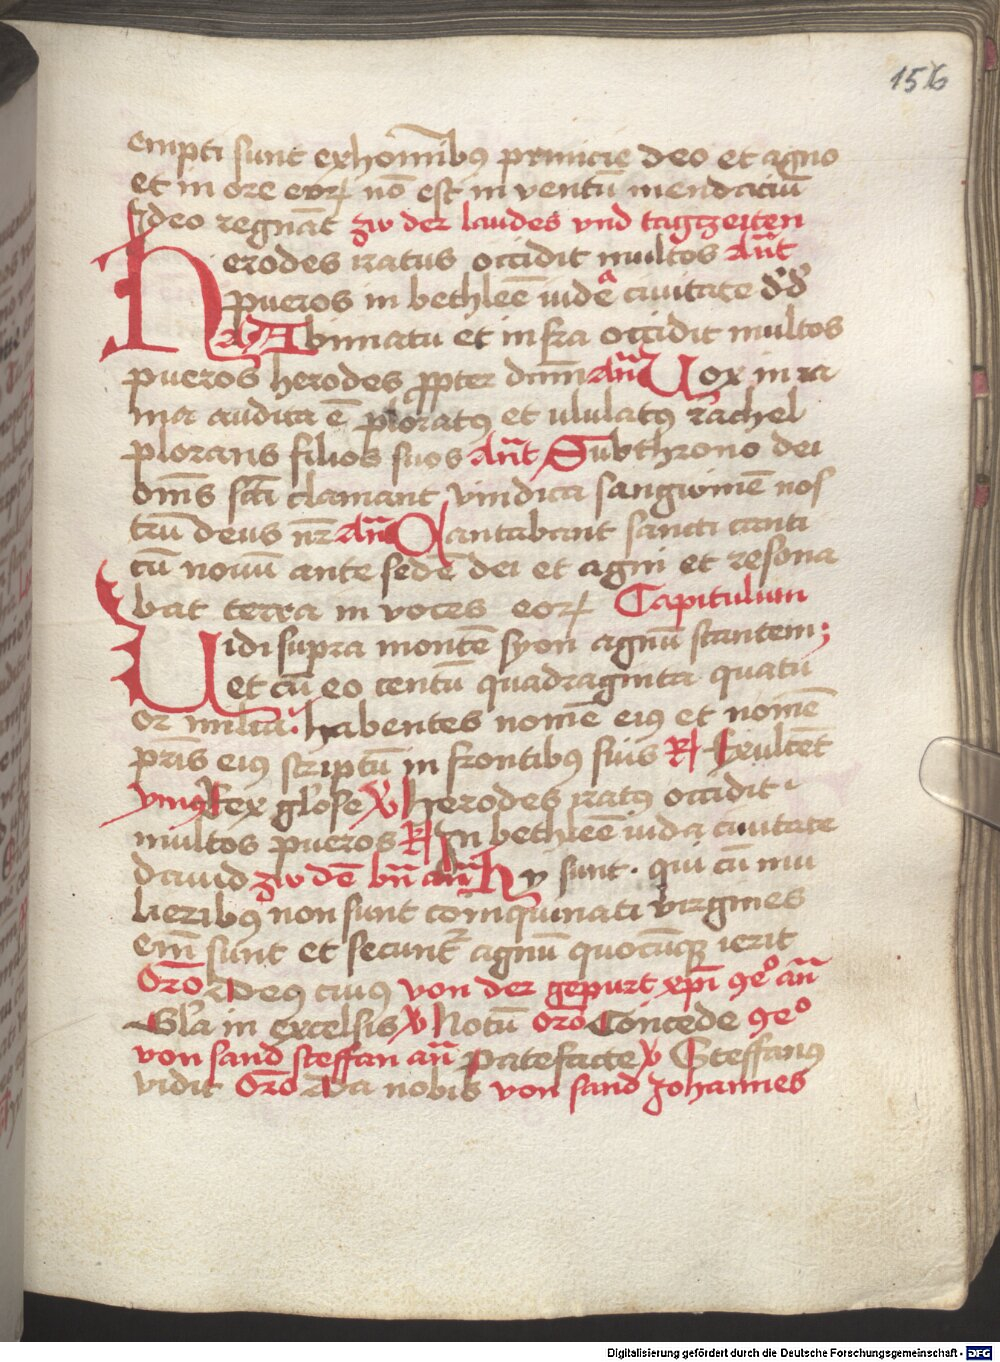 156
empti sunt exhomĩbꝯ primicie deo et agno
et in ore eorꝝ nō est in ventū mendaciū
Ideo regnāt zw der laudes vnd tagzeiten
Herodes iratus occidit multos Añt
pueros in bethleē iude ciuitate dd
A bimatu et infra occidit multos
pueros herodes ꝓpter dñm Añ Uox in ra
ma audita ē ploratꝯ et vlulatꝯ rachel
plorans filios suos Añt Subthrono dei
om̄s scī clamant vindica sangwinē nos
trū deus nr̄ Añ Cantabant sancti canti
cū nouū ante sedē dei et agni et resona
bat terra in voces eorꝝ Capitulum
Uidi supra montē syon agnū stantem
et cū eo centū quadraginta quatu
or milia: habentes nomē eiꝯ et nomē
pr̄is eiꝯ scriptū in frontibꝯ suis R Exultēt
ymꝯ Rex glōse V Herodes iratꝯ occidit
multos pueros R In bethleē iuda ciuitate
dauid zw dē bñ añ Hy sunt qui cū mu
lieribꝯ non sunt coinquinati virgines
em̄ sunt et secunt̄ agnū quocūqꝫ ierit
Orō Deꝯ cuiꝯ von der gepurt xp̄i ꝯꝯ añ
Glā in excelsis V Notū orō Concede ꝯꝯ
von sand steffan añ patefacte V Steffanꝯ
vidit Orō Da nobis von sand Johannes
Digitalisierung gefördert durch die Deutsche Forschungsgemeinschaft - DFG